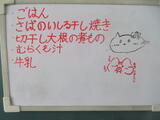 ごはん
さばのいしる干し焼き
切干し大根の煮もの
むらくも汁
牛乳